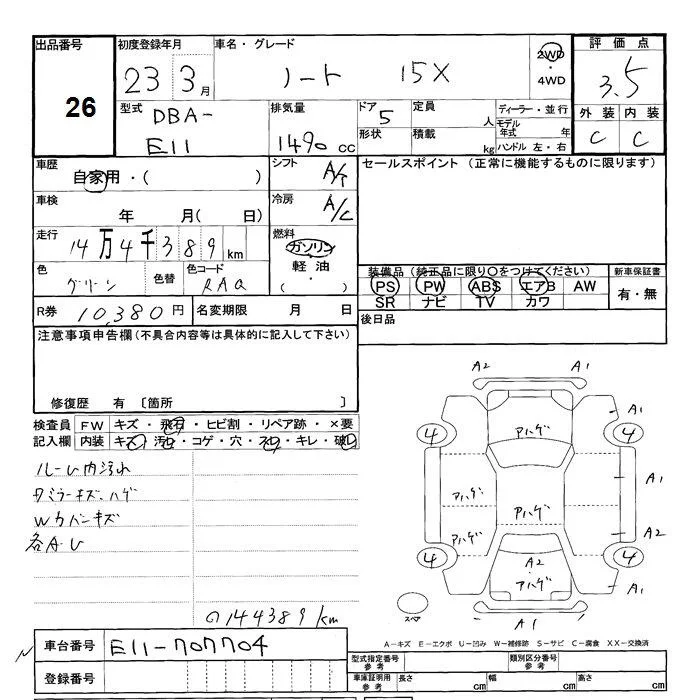 出品番号 初度登録年月 車名・グレード 2WD 評価点
26 23 3月 ノート 15X 4WD 3.5
外装 内装
C C
型式 DBA- E11 排気量 1490 cc ドア 5 定員 人 ディーラー・並行
形状 積載 kg モデル年式 年
ハンドル 左・右
車歴 自家用・( ) シフト A/T セールスポイント (正常に機能するものに限ります)
車検 年 月( 日) 冷房 A/C
走行 14万4千389km 燃料 ガソリン
軽油
・( )
色 グリーン 色替 色コード RAQ
装備品 (純正品に限り○をつけてください) 新車保証書
PS PW ABS エアB AW 有・無
SR ナビ TV カワ
R券 10,380円 名変期限 月 日 後日品
注意事項申告欄 (不具合内容等は具体的に記入して下さい)
修復歴 有 〔箇所 〕
検査員 FW キズ・飛石・ヒビ割・リペア跡・×要
記入欄 内装 キズ・汚れ・コゲ・穴・スレ・キレ・破レ
ルーム内汚れ
Wカバンキズ
各AU
144389km
A2 A1
A1
4 アハゲ 4
A1
アハゲ
アハゲ アハゲ A2
4 A2 4
アハゲ A1
スペア A1
A-キズ E-エクボ U-凹み W-補修跡 S-サビ C-腐食 XX-交換済
車台番号 E11-707704
登録番号
型式指定番号 参考 類別区分番号 参考
車庫証明用 参考 長さ cm 幅 cm 高さ cm